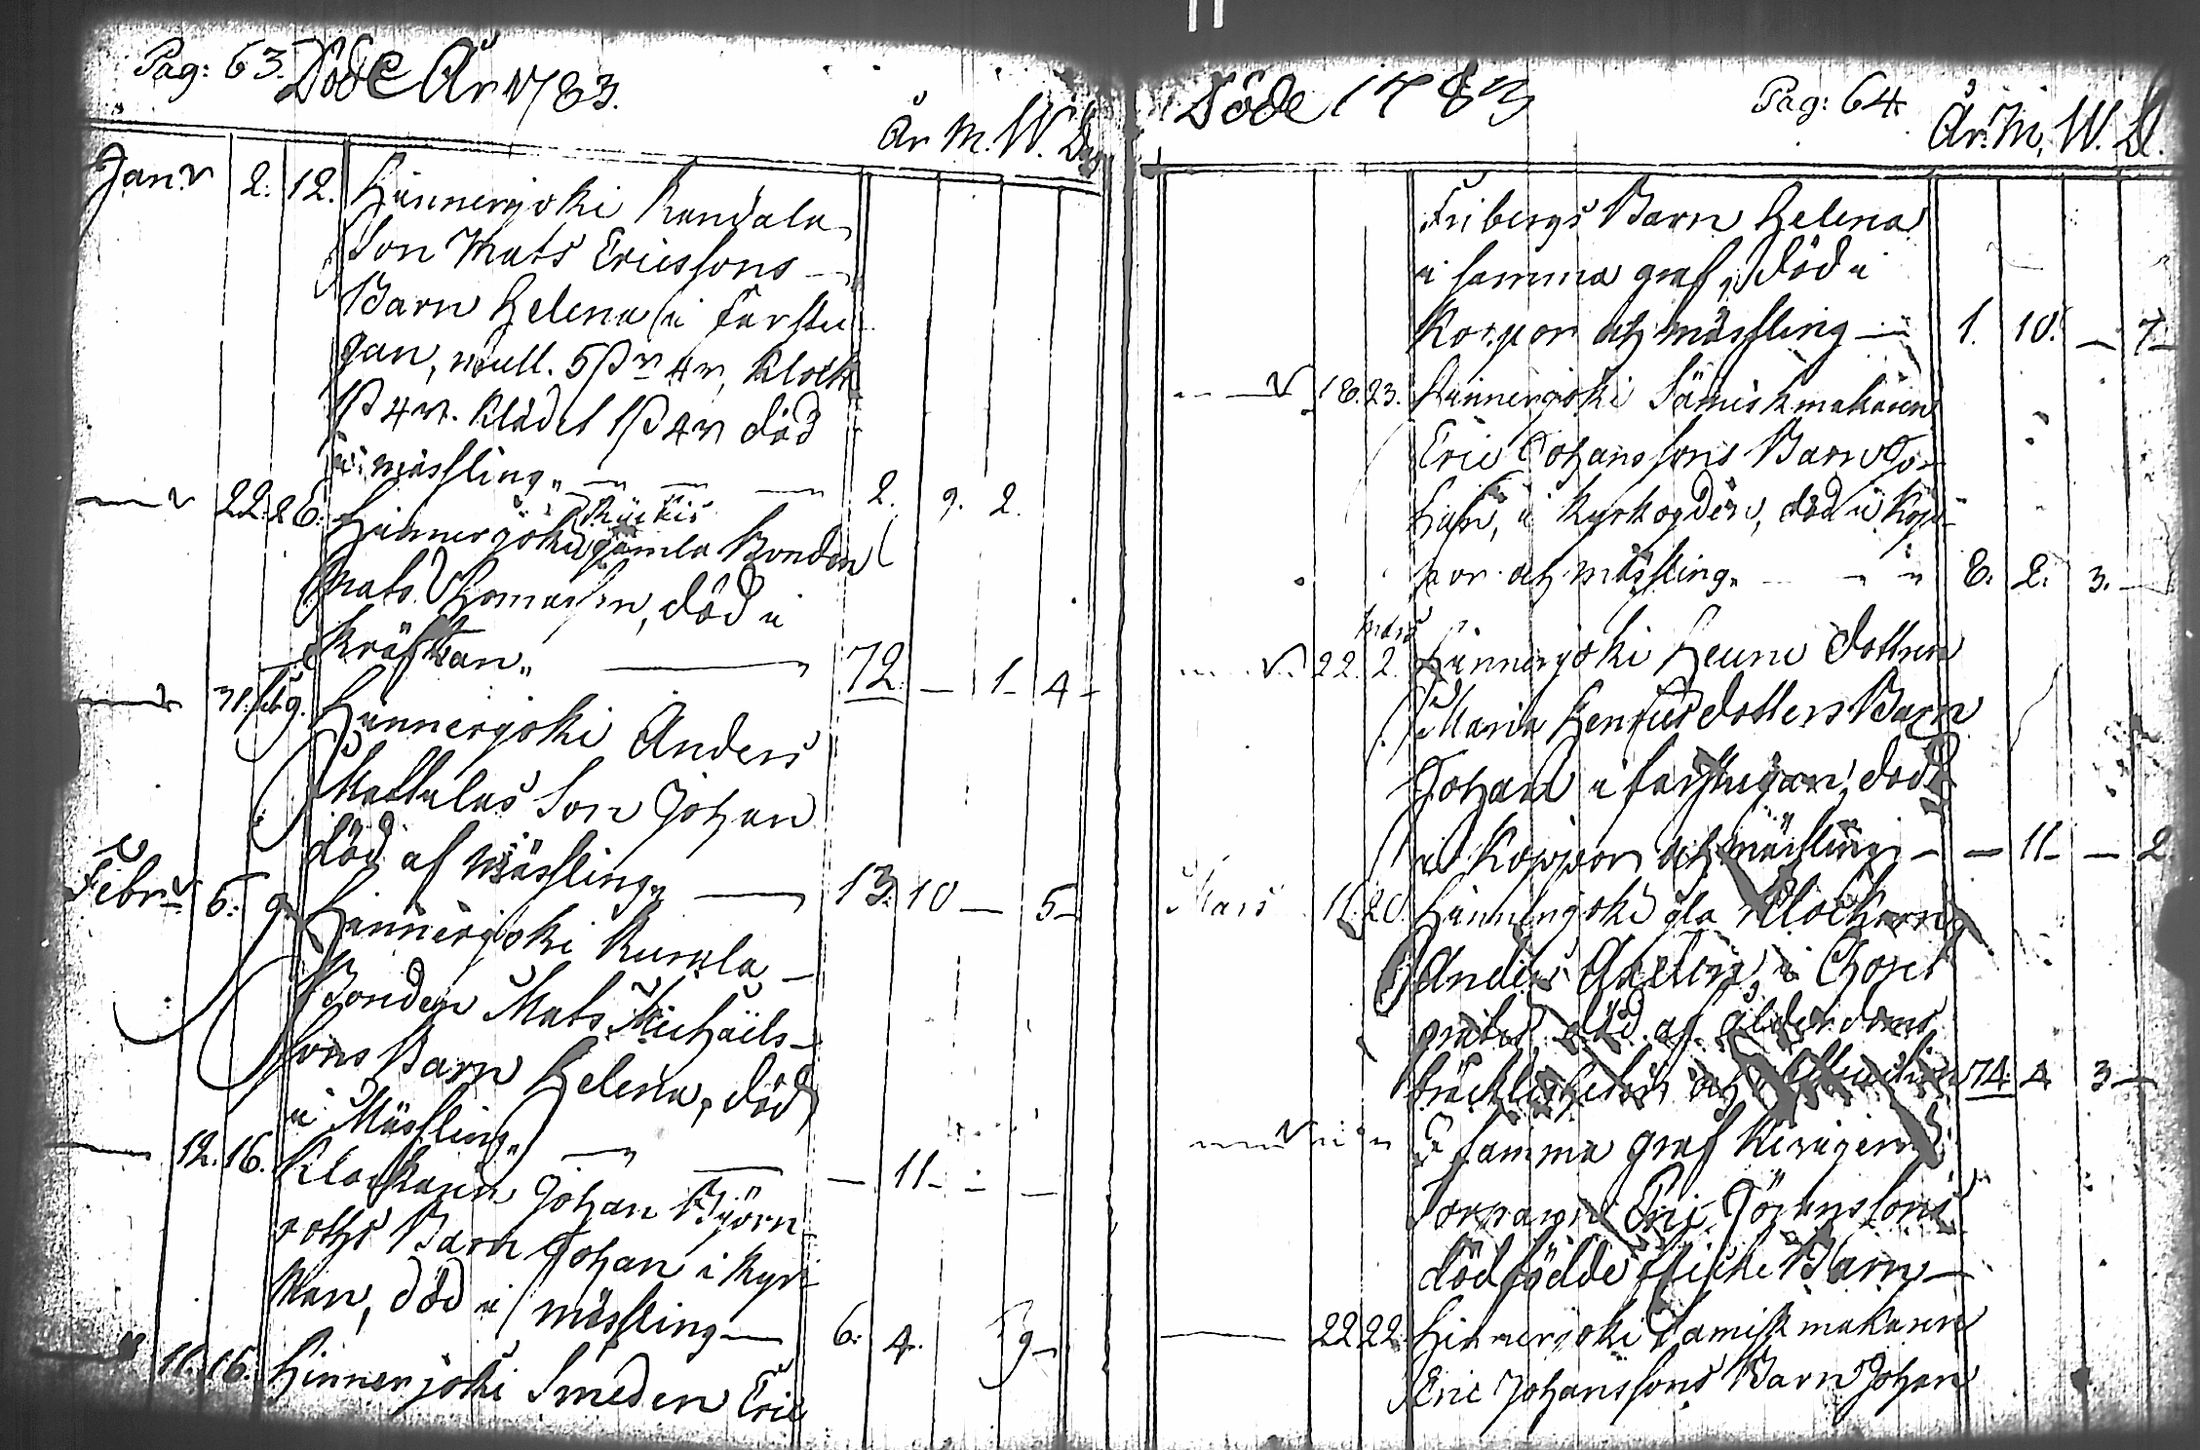 Pag: 63. Döde År 1783.
År M. W. Dag
Janv 2. 12. Hinnerjoki Kandala
Son Mats Ericssons
Barn Helena i farstu
gan, mull. 5 P 4 r, klock
1 P 4 r. klädet 1 P 4 r död
i mässling 2. 9. 2.
22. 26. Hinnerjoki gamla Bonden
Mats Thomasson, död i
kräftan 72 — 1 — 4 —
31. feb 9. Hinnerjoki Anders
Mattulas Son Johan
död af mässling 13. 10 — 5 —
Febr 5. 9 Hinnerjoki Kurkla
Bonden Mats Michaëls
sons Barn Helena, död
i Mässling — 11 — —
12. 16. Klockaren Johan Björn
roths Barn Johan i Kyr
kan, död i mässling — 6. 4. 9 —
11. 16. Hinnerjoki Smeden Eric
Döde 1783 Pag: 64
År. M. W. D.
Fribergs Barn Helena
i samma graf, död i
Koppor och mässling — 1. 10. — 7
18. 23. Hinnerjoki Sämiskmakaren
Eric Johanssons Barn Jo
han, i kyrkogården, död i Kop
por och mässling 8. 2. 3. —
Mars
22. 2. Hinnerjoki Heuru dottren
Maria Henricsdotters Barn
Johan i farstugan, död
i Koppor och mässling — — 11 — — 2
Mars 16. 20. Hinnerjoki gla Klockaren
Anders Axelin, i Choret
död af ålderdoms
bräcklighet och 74. 4 3 —
I samma graf
Eric Jöransons
dödfödde flicke Barn —
22 22. Hinnerjoki Sämiskmakaren
Eric Johanssons Barn Johan